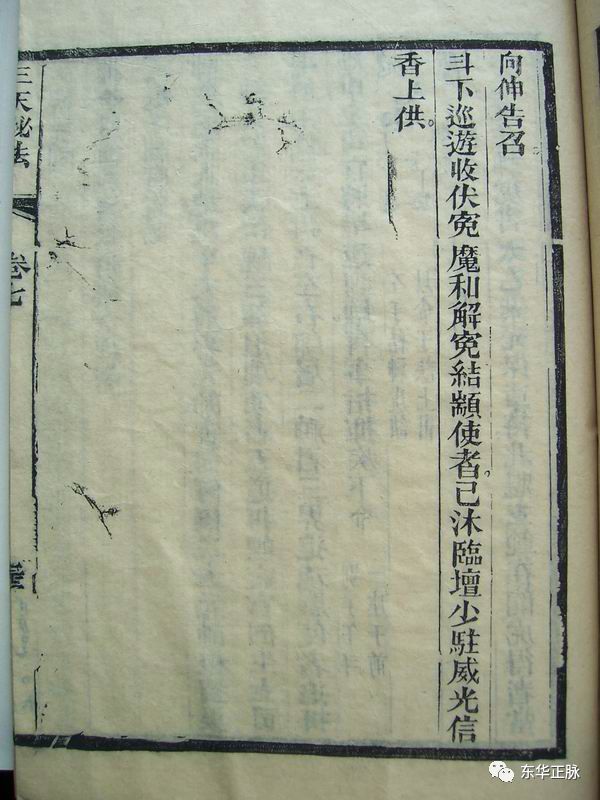 向伸告召。
斗下巡遊收伏寃魔和解寃結顓使者。已沐臨壇少駐威光信
香上供。
三天秘法
卷七
东华正脉